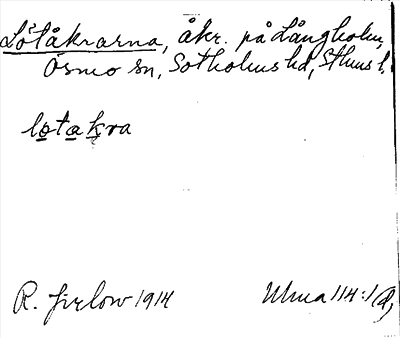 Lötåkrarna, åkr. på Långholm,
Ösmo sn, Sotholms hd, Sthms l.
lo̲ta̲k̲ra
R. Jirlow 1914
Ulma 114:1(d)